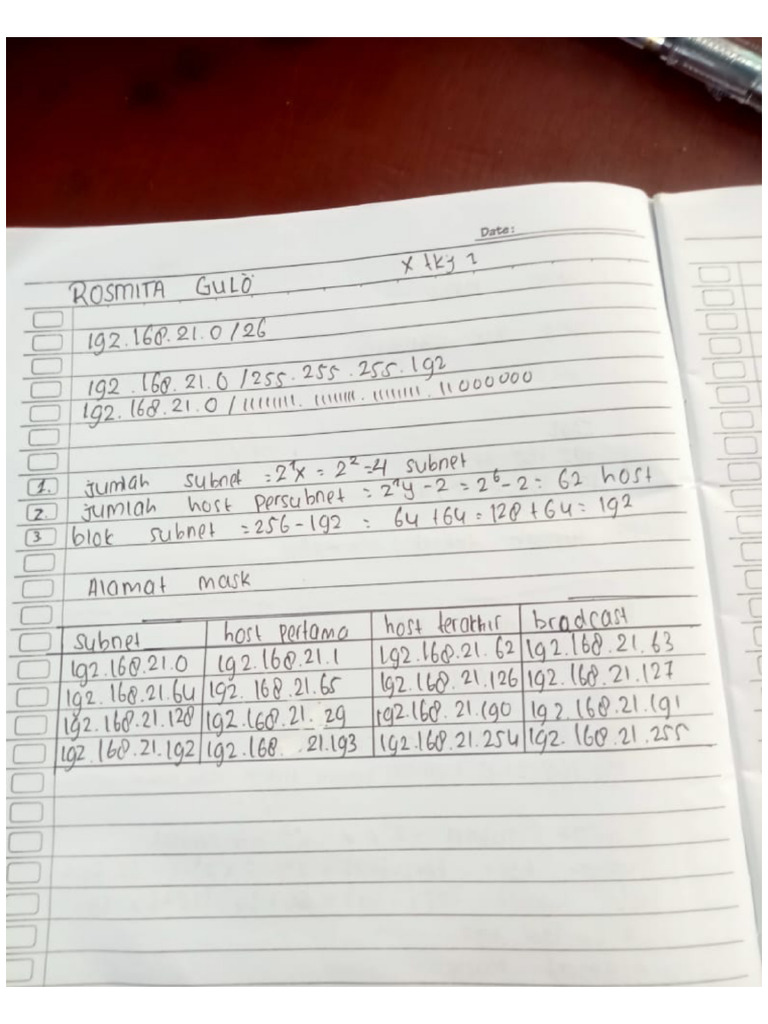 Date:
ROSMITA GULÖ X tkj 2
192.168.21.0/26
192.168.21.0/255.255.255.192
192.168.21.0/11111111.11111111.11111111.11000000
1. jumlah subnet = 2^x = 2² = 4 subnet
2. jumlah host persubnet = 2^y - 2 = 2⁶ - 2 = 62 host
3 blok subnet = 256 - 192 = 64 + 64 = 128 + 64 = 192
Alamat mask
subnet host pertama host terakhir brodcast
192.168.21.0 192.168.21.1 192.168.21.62 192.168.21.63
192.168.21.64 192.168.21.65 192.168.21.126 192.168.21.127
192.168.21.128 192.168.21.29 192.168.21.190 192.168.21.191
192.168.21.192 192.168. .21.193 192.168.21.254 192.168.21.255